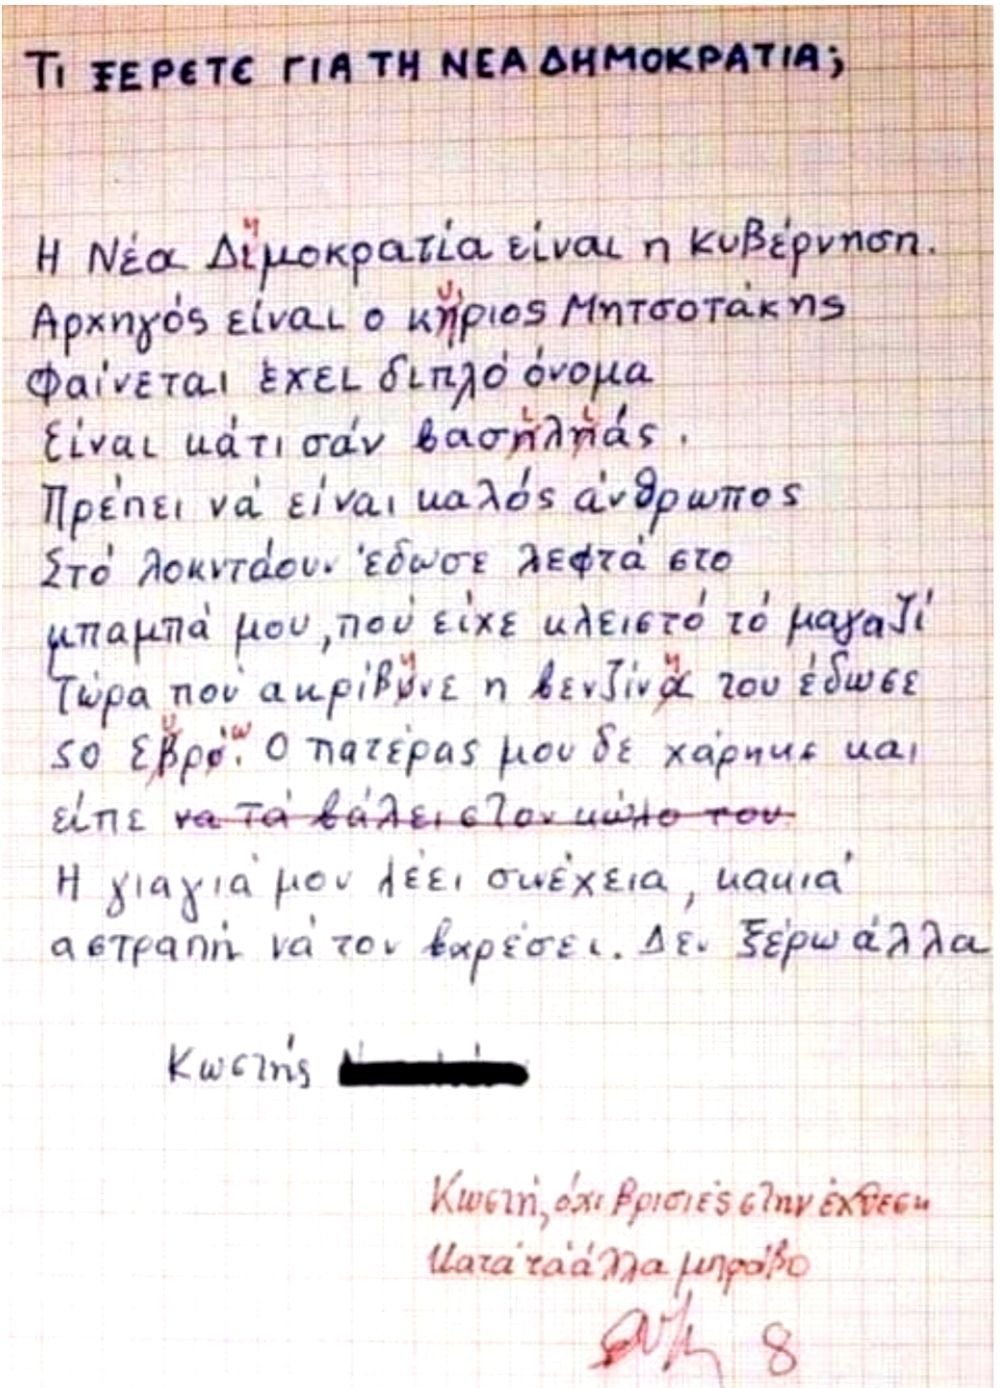 ΤΙ ΞΕΡΕΤΕ ΓΙΑ ΤΗ ΝΕΑ ΔΗΜΟΚΡΑΤΙΑ;
Η Νέα Διμοκρατία είναι η κυβέρνηση.
Αρχηγός είναι ο κήριος Μητσοτάκης
Φαίνεται έχει διπλό όνομα
Είναι κάτι σάν βασηληάς.
Πρέπει νά είναι καλός άνθρωπος
Στό λοκντάουν έδωσε λεφτά στο
μπαμπά μου, πού είχε κλειστό τό μαγαζί
Τώρα πού ακρίβυνε η βενζίνα του έδωσε
50 Εβρό. Ο πατέρας μου δε χάρηκε και
είπε να τά βάλει στον κώλο του
Η γιαγιά μου λέει συνέχεια, κακιά
αστραπή νά τον βαρέσει. Δέν ξέρω άλλα
Κωστής
Κωστή, όχι βρισιές στην έκθεση
Κατά τά άλλα μπράβο
8